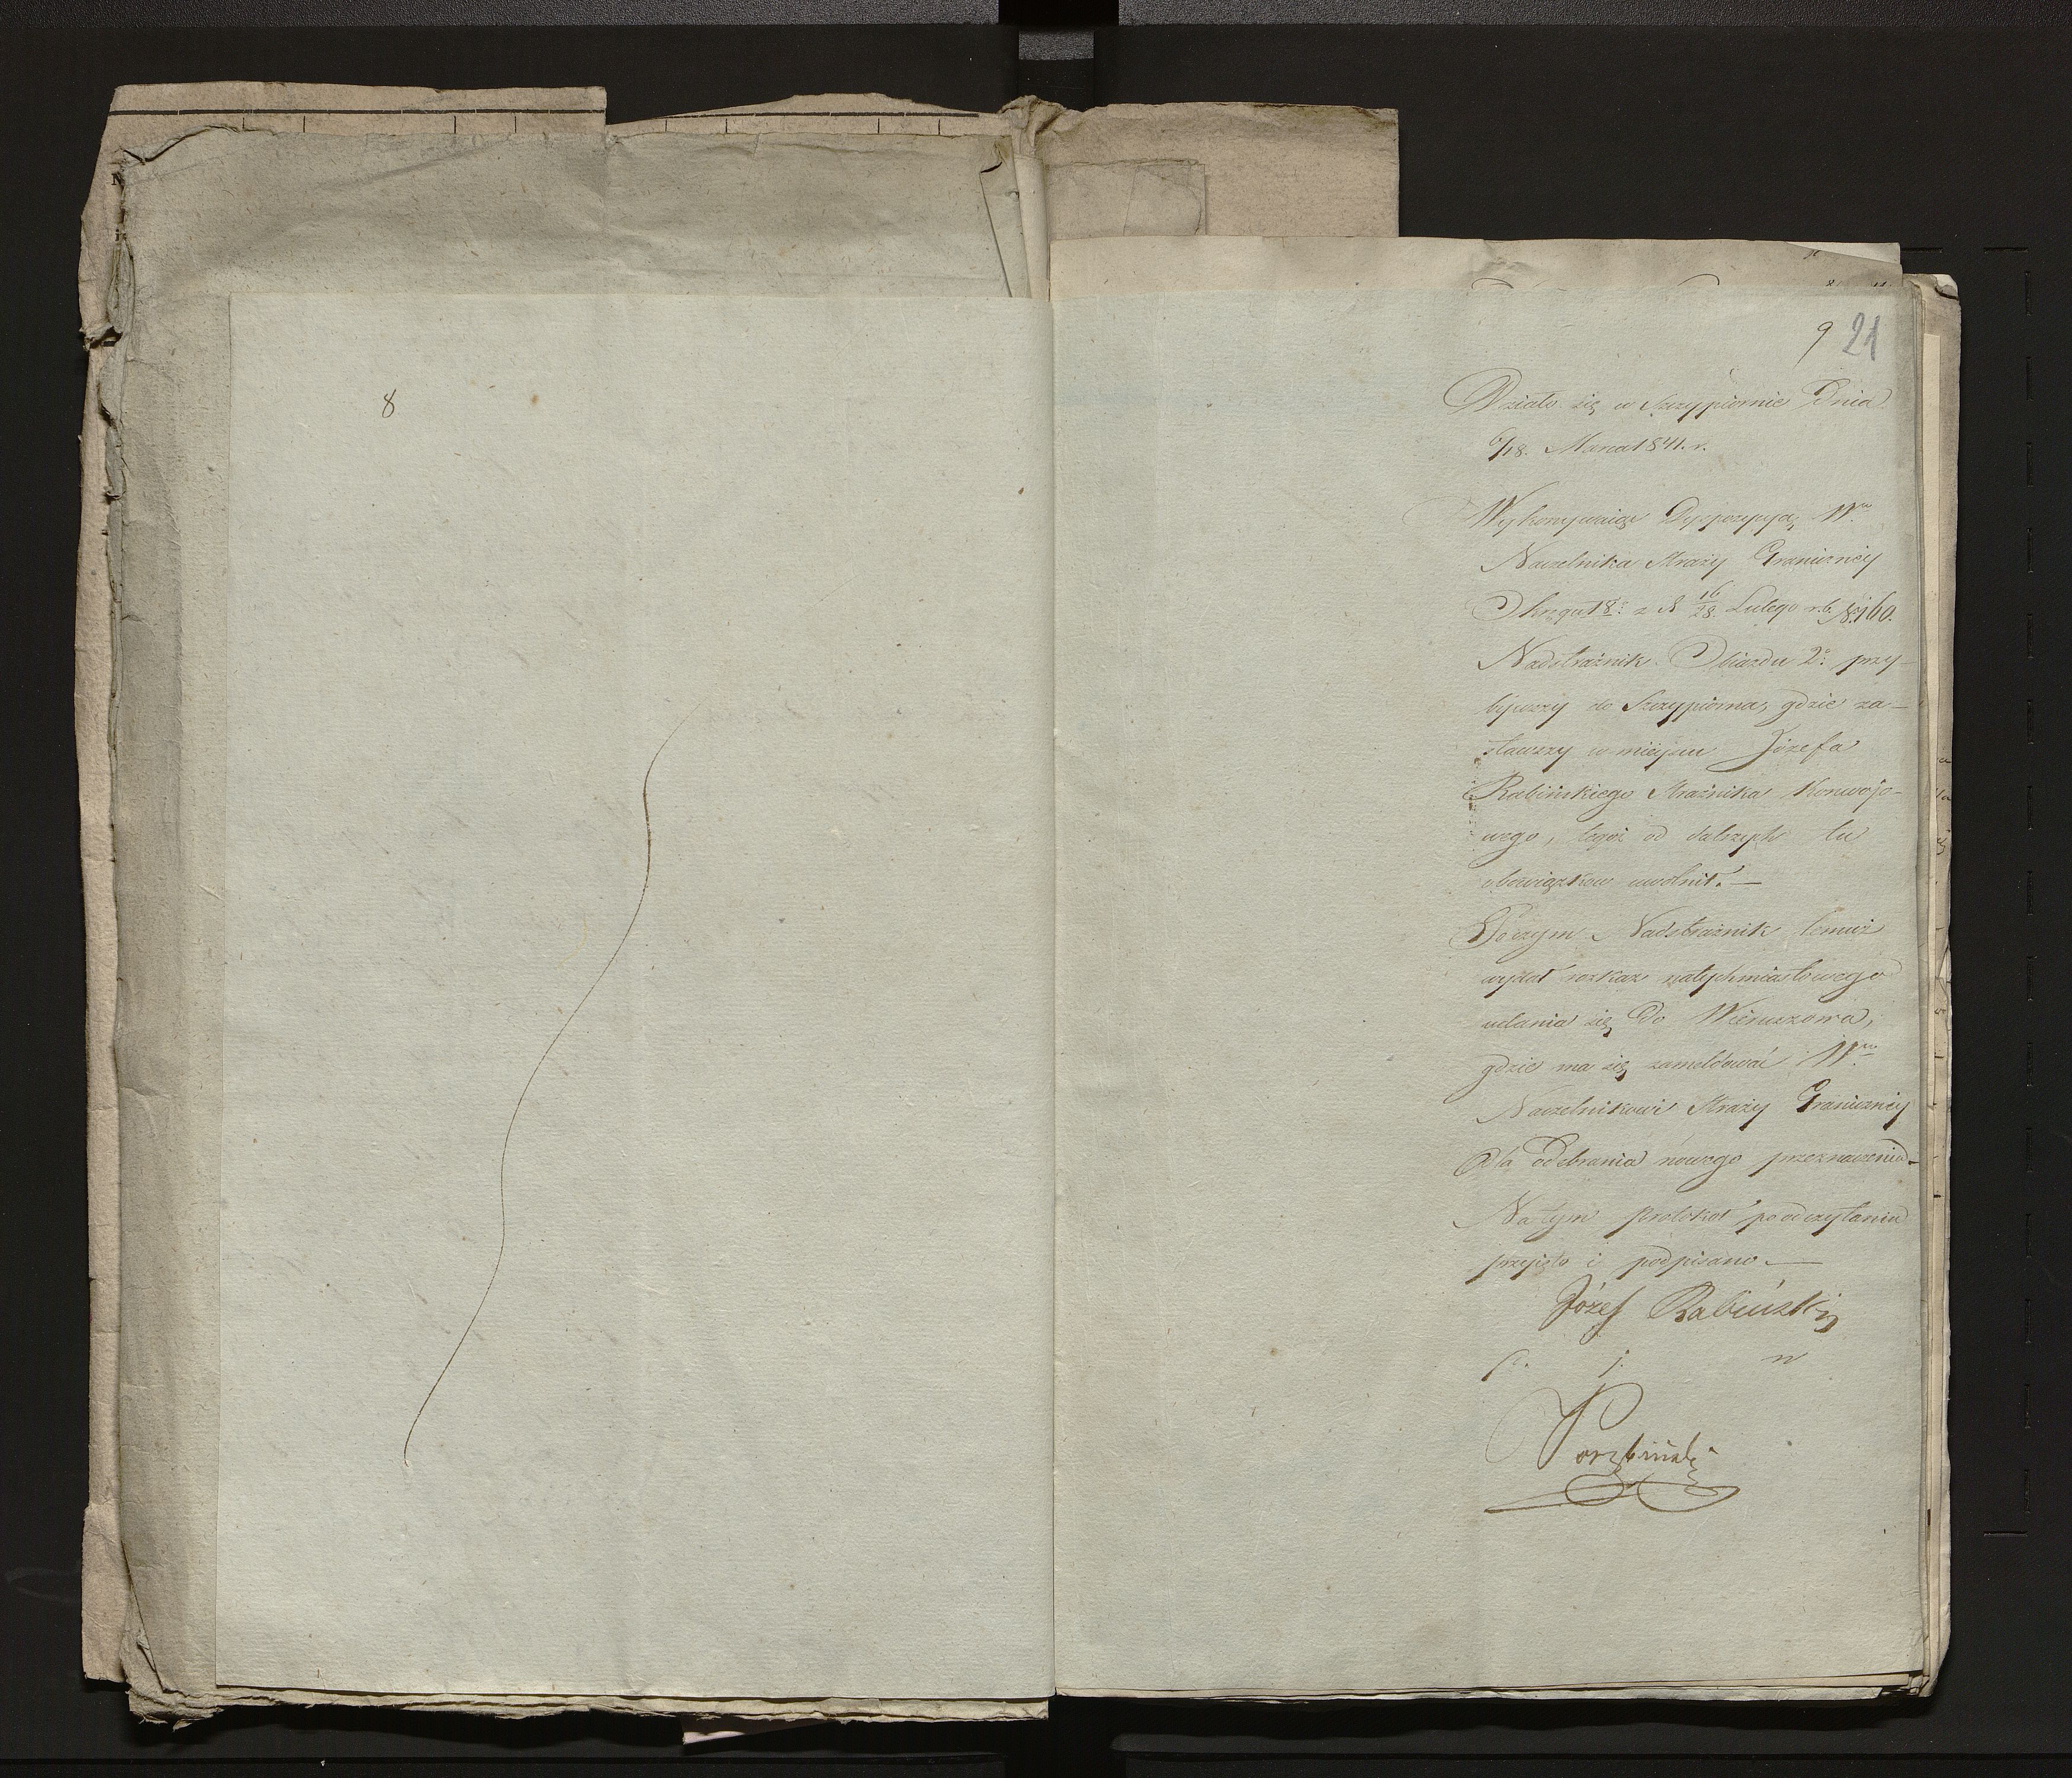 8
9 21
Działo się w Szczypiornie Dnia
6/18. Marca 1841. r.
Wykonywaiąc Dyspozycyą W.
Naczelnika Straży Graniczney
Okręgu 18: z d 16/28. Lutego r. b. 160.
Nadstrażnik Obiazdu 2: przy-
bywszy do Szczypiorna, gdzie za-
stawszy w mieyscu Józefa
Rabińskiego Strażnika Konwojo-
wego, tegoż od dalszych tu
obowiązkow uwolnił. —
Poczym Nadstrażnik temuż
wydał rozkaz natychmiastowego
udania się do Wieruszowa,
gdzie ma się zameldować W.
Naczelnikowi Straży Graniczney
dla odebrania nowego przeznaczenia.
Na tym protokoł po odczytaniu
przyięto i podpisano. —
Józef Rabiński